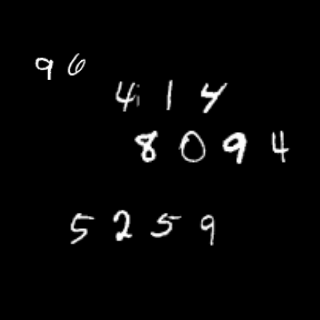 96
414
8094
5259